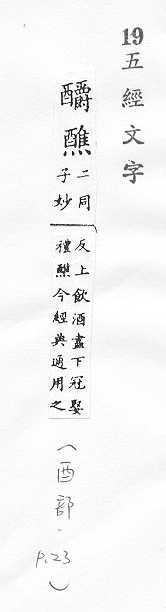 19 五經文字
釂醮
二同
子妙
反上飲酒盡下冠娶
禮醮今經典通用之
(酉部. p.23)